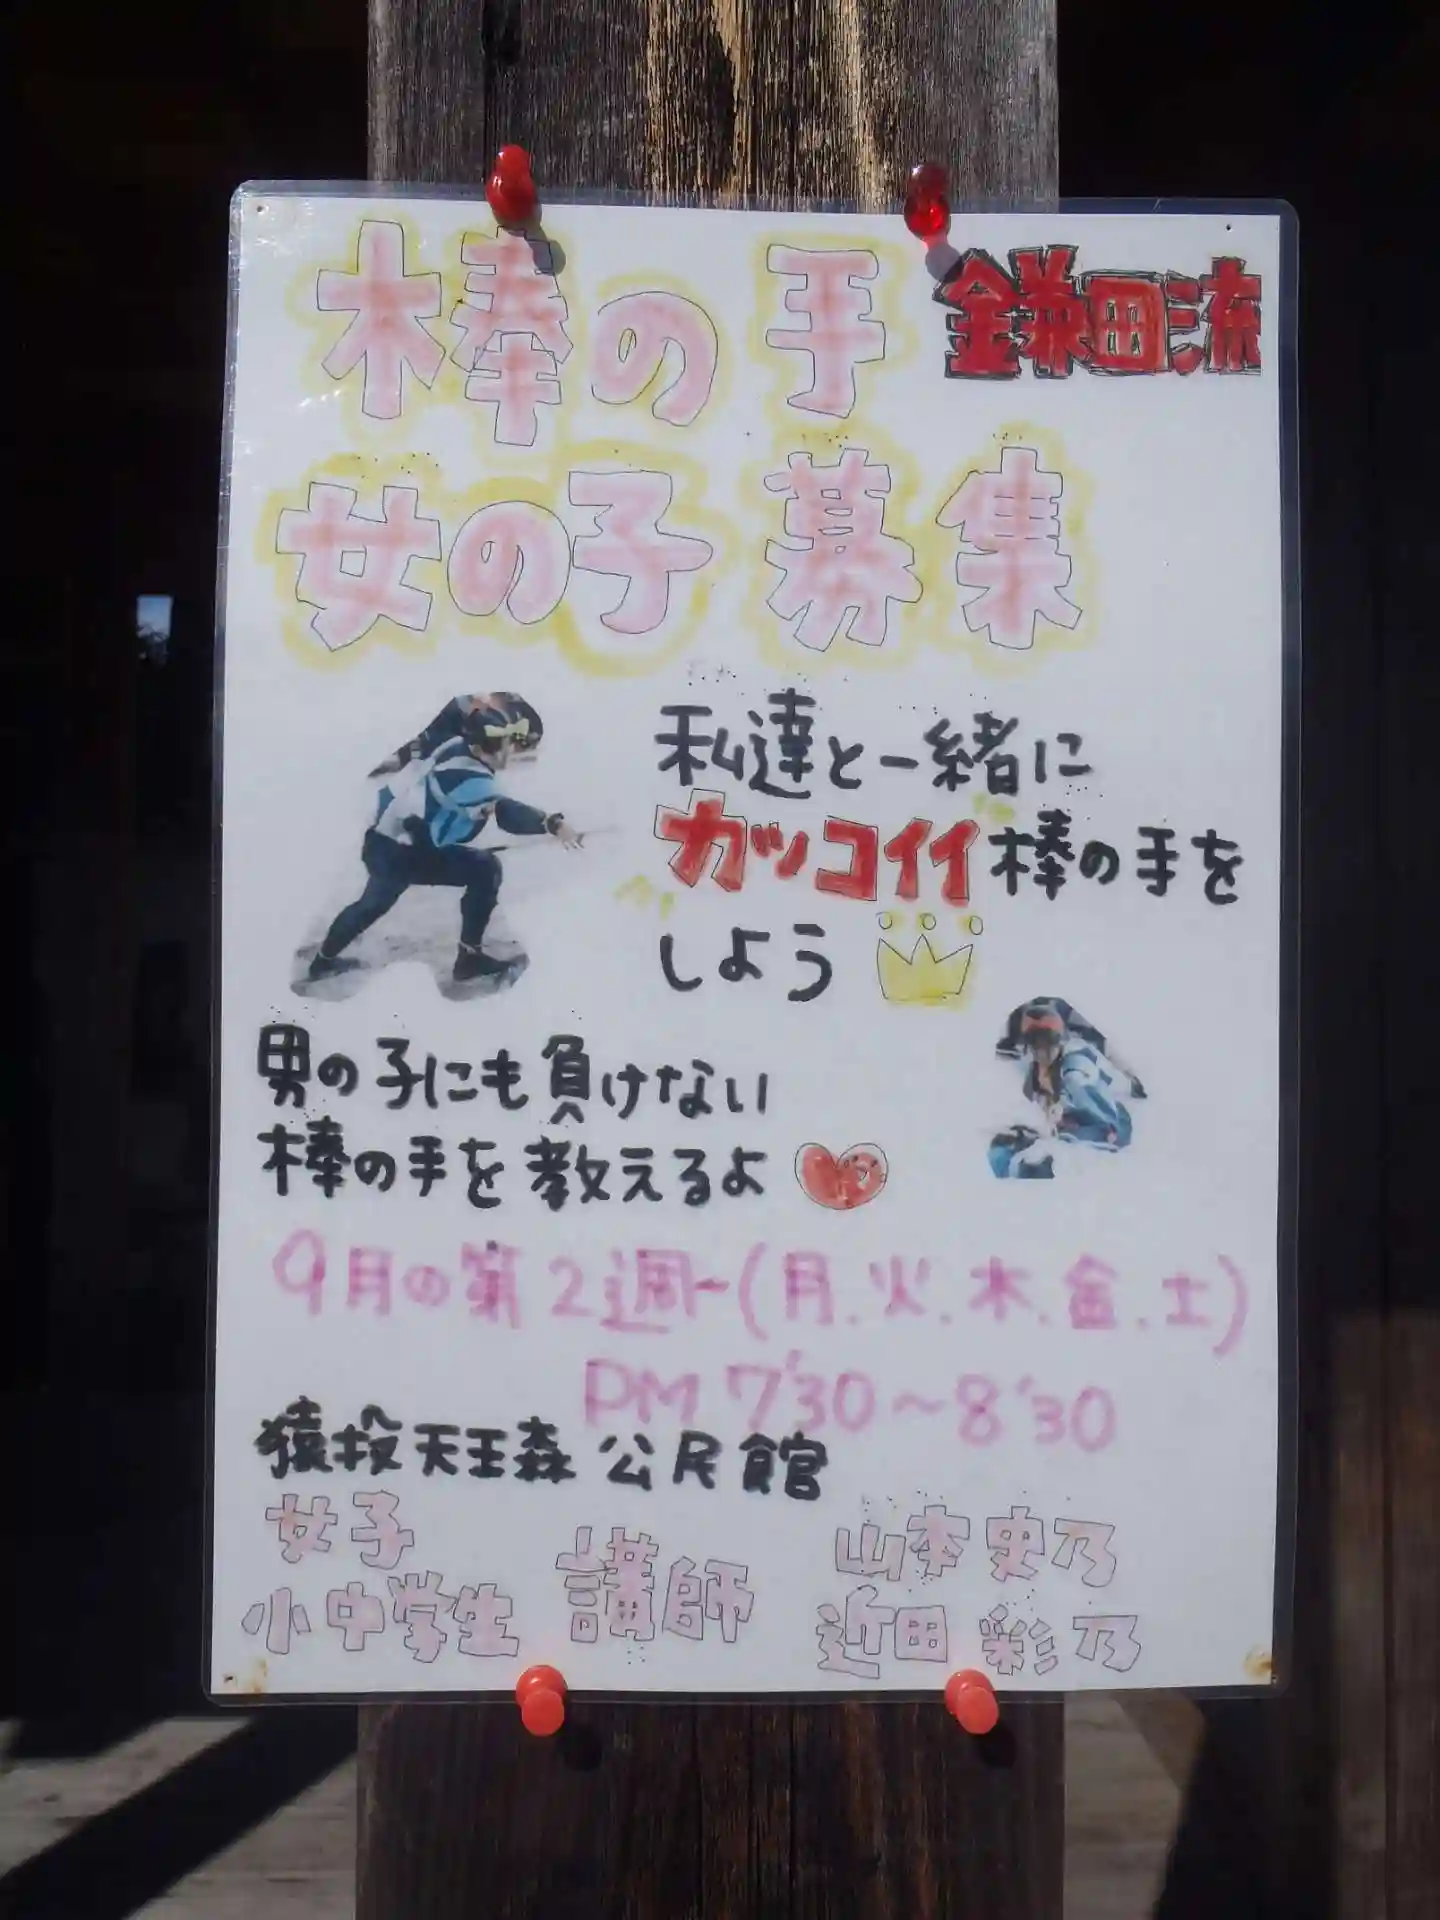 棒の手 鎌田流
女の子 募集
私達と一緒に
カッコイイ棒の手を
しよう
男の子にも負けない
棒の手を教えるよ
9月の第2週～(月.火.木.金.土)
PM 7'30～8'30
猿投天王森公民館
女子
小中学生
講師
山本史乃
近田彩乃